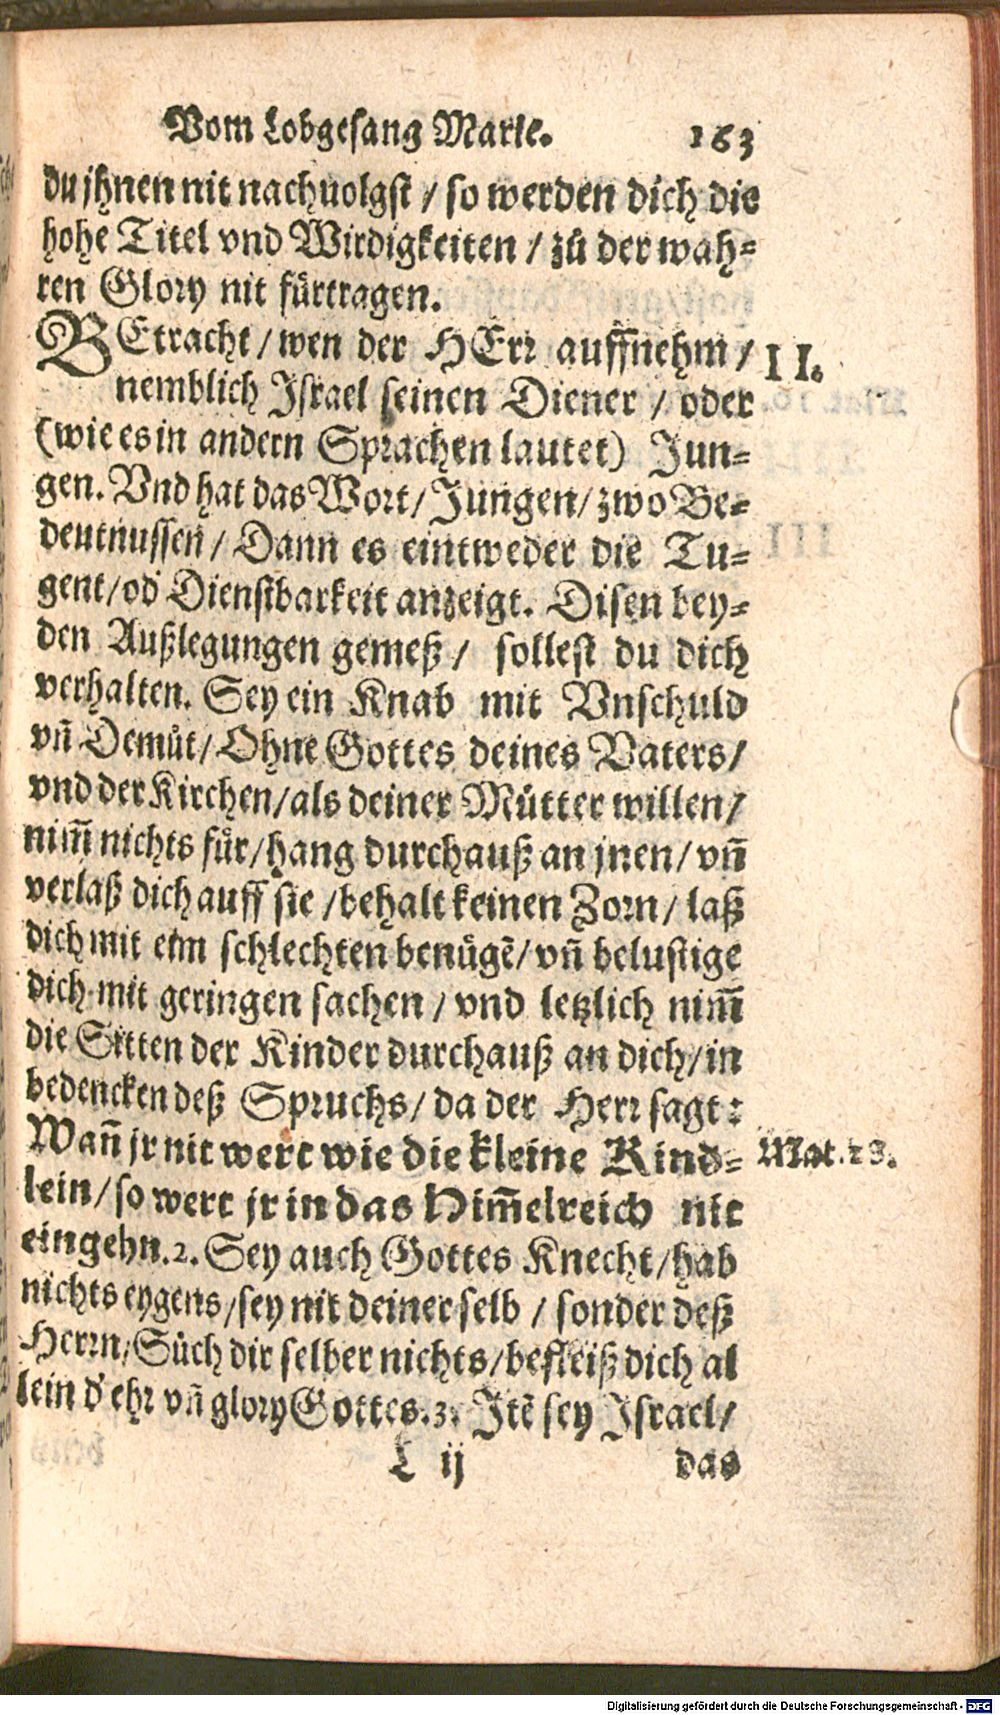 Vom Lobgesang Marie. 163
du jhnen nit nachuolgst / so werden dich die
hohe Titel vnd Wirdigkeiten / zů der wah-
ren Glory nit fürtragen.
BEtracht / wen der HErr auffnehm / II.
nemblich Israel seinen Diener / oder
(wie es in andern Sprachen lautet) Jun-
gen. Vnd hat das Wort / Jungen / zwo Be-
deutnussen / Dann es eintweder die Tu-
gent / od' Dienstbarkeit anzeigt. Disen bey-
den Außlegungen gemeß / sollest du dich
verhalten. Sey ein Knab mit Vnschuld
vñ Demůt / Ohne Gottes deines Vaters /
vnd der Kirchen / als deiner Můtter willen /
nim̃ nichts für / hang durchauß an jnen / vñ
verlaß dich auff sie / behalt keinen Zorn / laß
dich mit eim schlechten benügẽ / vñ belustige
dich mit geringen sachen / vnd letzlich nim̃
die Sitten der Kinder durchauß an dich / in
bedencken deß Spruchs / da der Herr sagt:
Wañ jr nit wert wie die kleine Kind- Mat. 18.
lein / so wert jr in das Him̃elreich nit
eingehn. 2. Sey auch Gottes Knecht / hab
nichts eygens / sey nit deiner selb / sonder deß
Herrn / Sůch dir selber nichts / befleiß dich al
lein d' ehr vñ glory Gottes. 3. Itẽ sey Israel /
L ij das
Digitalisierung gefördert durch die Deutsche Forschungsgemeinschaft - DFG